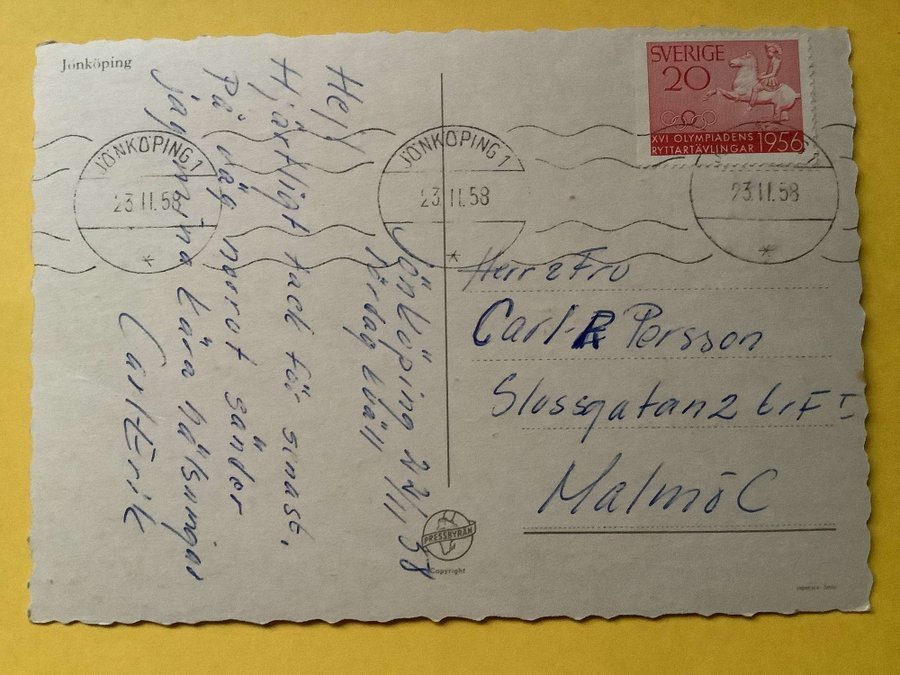 Jönköping
SVERIGE
20
XVI OLYMPIADENS
RYTTARTÄVLINGAR 1956
JÖNKÖPING 1
23.11.58
JÖNKÖPING 1
23.11.58
23.11.58
Jönköping 22/11, 58
lördag kväll
Hej!
Hjärtligt tack för sinast.
På däg noorot sänder
jag mina kära hälsningar
Carl Erik
Herr & Fru
Carl-R Persson
Slussgatan 2 tr F I
Malmö C
PRESSBYRÅN
Copyright